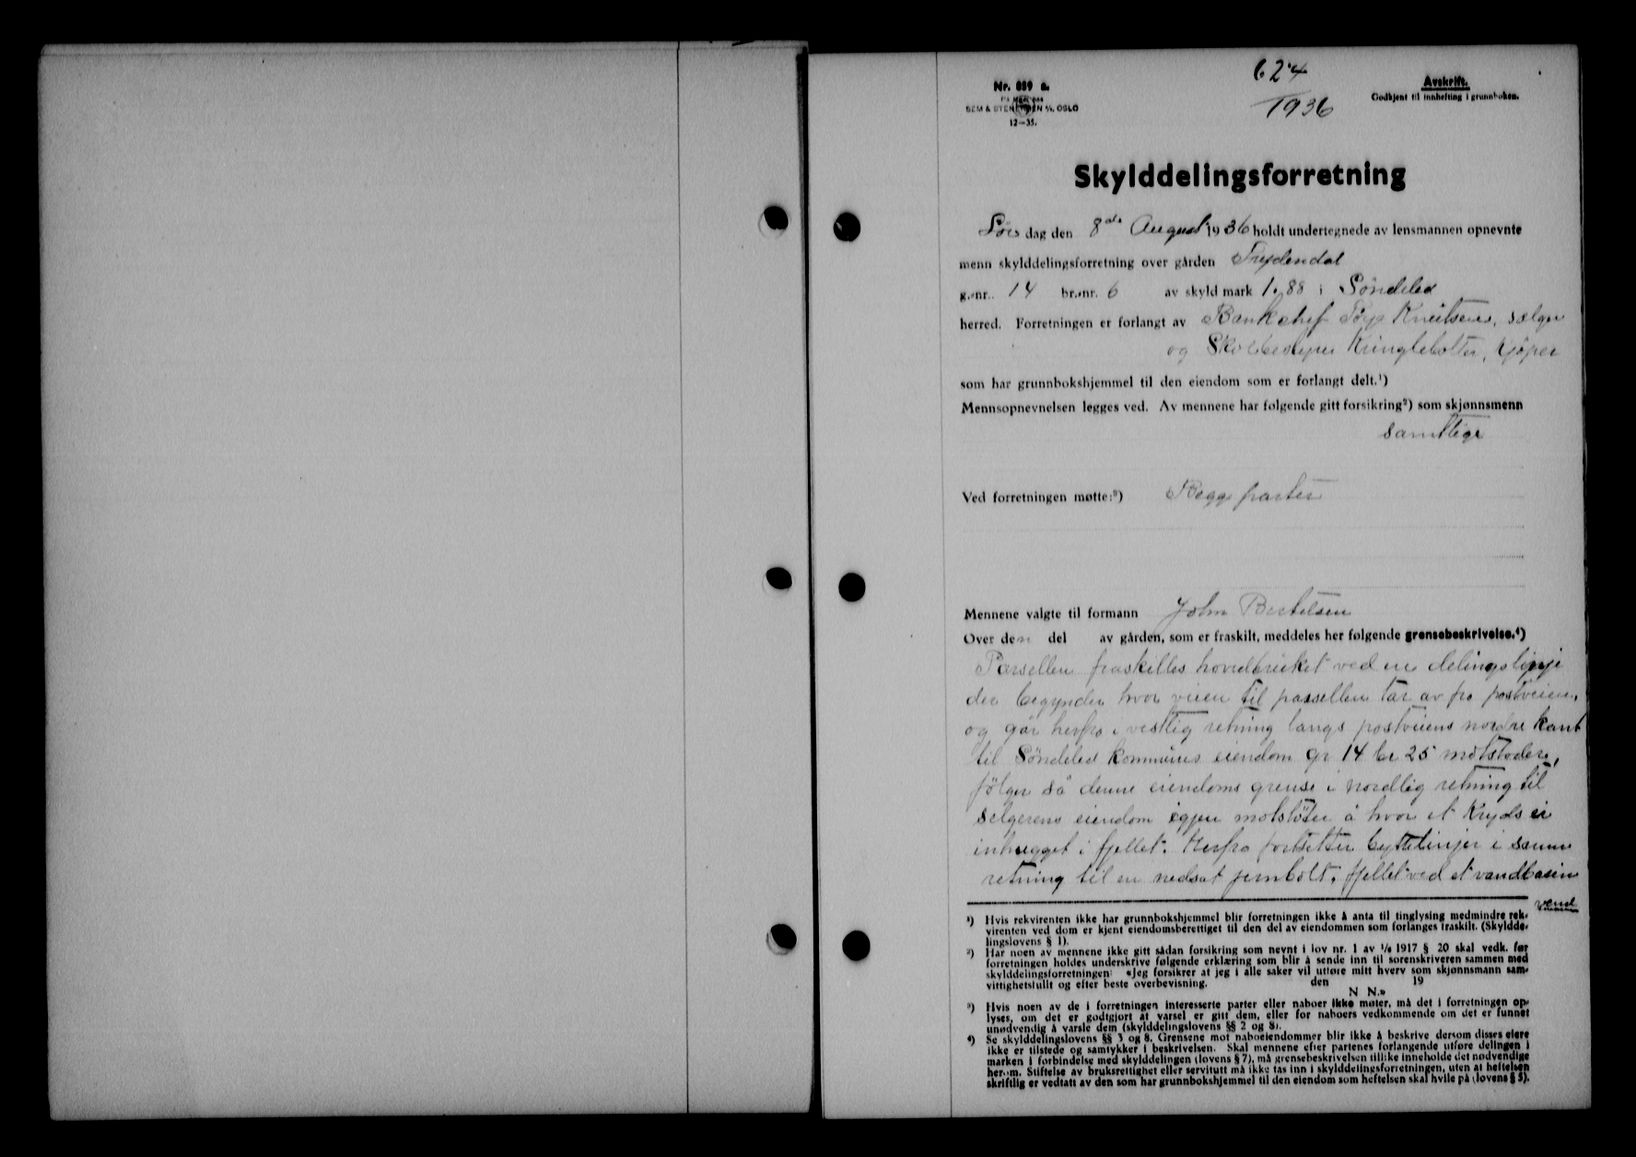 Nr. 889 a.
SEM & STENERSEN A/S, OSLO
12—35.
624
1936
Avskrift.
Godkjent til innhefting i grunnboken.
Skylddelingsforretning
Lörs dag den 8de August 1936 holdt undertegnede av lensmannen opnevnte
menn skylddelingsforretning over gården Frydendal
g.-nr. 14 br.-nr. 6 av skyld mark 1.88 i Söndeled
herred. Forretningen er forlangt av Bankchef Knutsen, sælger
og Kringlebotten, kjöper
som har grunnbokshjemmel til den eiendom som er forlangt delt.¹)
Mennsopnevnelsen legges ved. Av mennene har følgende gitt forsikring²) som skjønnsmenn
samtlige
Ved forretningen møtte:³) Begge parter
Mennene valgte til formann John Bertelsen
Over den del av gården, som er fraskilt, meddeles her følgende grensebeskrivelse.⁴)
Parsellen fraskilles hovedbruket ved en delingslinje
der begynder hvor veien til parsellen tar av fra postveien,
og går herfra i vestlig retning langs postveiens nordre kant
til Söndeled kommunes eiendom gr 14 br 25 motstöder,
fölger så denne eiendoms grense i nordlig retning til
selgerens eiendom igjen motstöter å hvor et kryds er
inhugget i fjellet. Herfra fortsetter byttelinjen i samme
retning til en nedsat jernbolt i fjellet ved et vandbasin
vend
¹) Hvis rekvirenten ikke har grunnbokshjemmel blir forretningen ikke å anta til tinglysing medmindre rek-
virenten ved dom er kjent eiendomsberettiget til den del av eiendommen som forlanges fraskilt. (Skyldde-
lingslovens § 1).
²) Har noen av mennene ikke gitt sådan forsikring som nevnt i lov nr. 1 av 1/6 1917 § 20 skal vedk. før
forretningen holdes underskrive følgende erklæring som blir å sende inn til sorenskriveren sammen med
skylddelingsforretningen: «Jeg forsikrer at jeg i alle saker vil utføre mitt hverv som skjønnsmann sam-
vittighetsfullt og efter beste overbevisning. den 19
N N.»
³) Hvis noen av de i forretningen interesserte parter eller naboer ikke møter, må det i forretningen op-
lyses, om det er godtgjort at varsel er gitt dem, eller for naboers vedkommende om det er funnet
unødvendig å varsle dem (skylddelingslovens §§ 2 og 8).
⁴) Se skylddelingslovens §§ 3 og 8. Grensene mot naboeiendommer blir ikke å beskrive dersom disses eiere
ikke er tilstede og samtykker i beskrivelsen. Skal mennene efter partenes forlangende utføre delingen i
marken i forbindelse med skylddelingen (lovens § 7), må grensebeskrivelsen tillike inneholde det nødvendige
herom. Stiftelse av bruksrettighet eller servitutt må ikke tas inn i skylddelingsforretningen, uten at heftelsen
skriftlig er vedtatt av den som har grunnbokshjemmel til den eiendom som heftelsen skal hvile på (lovens § 5).